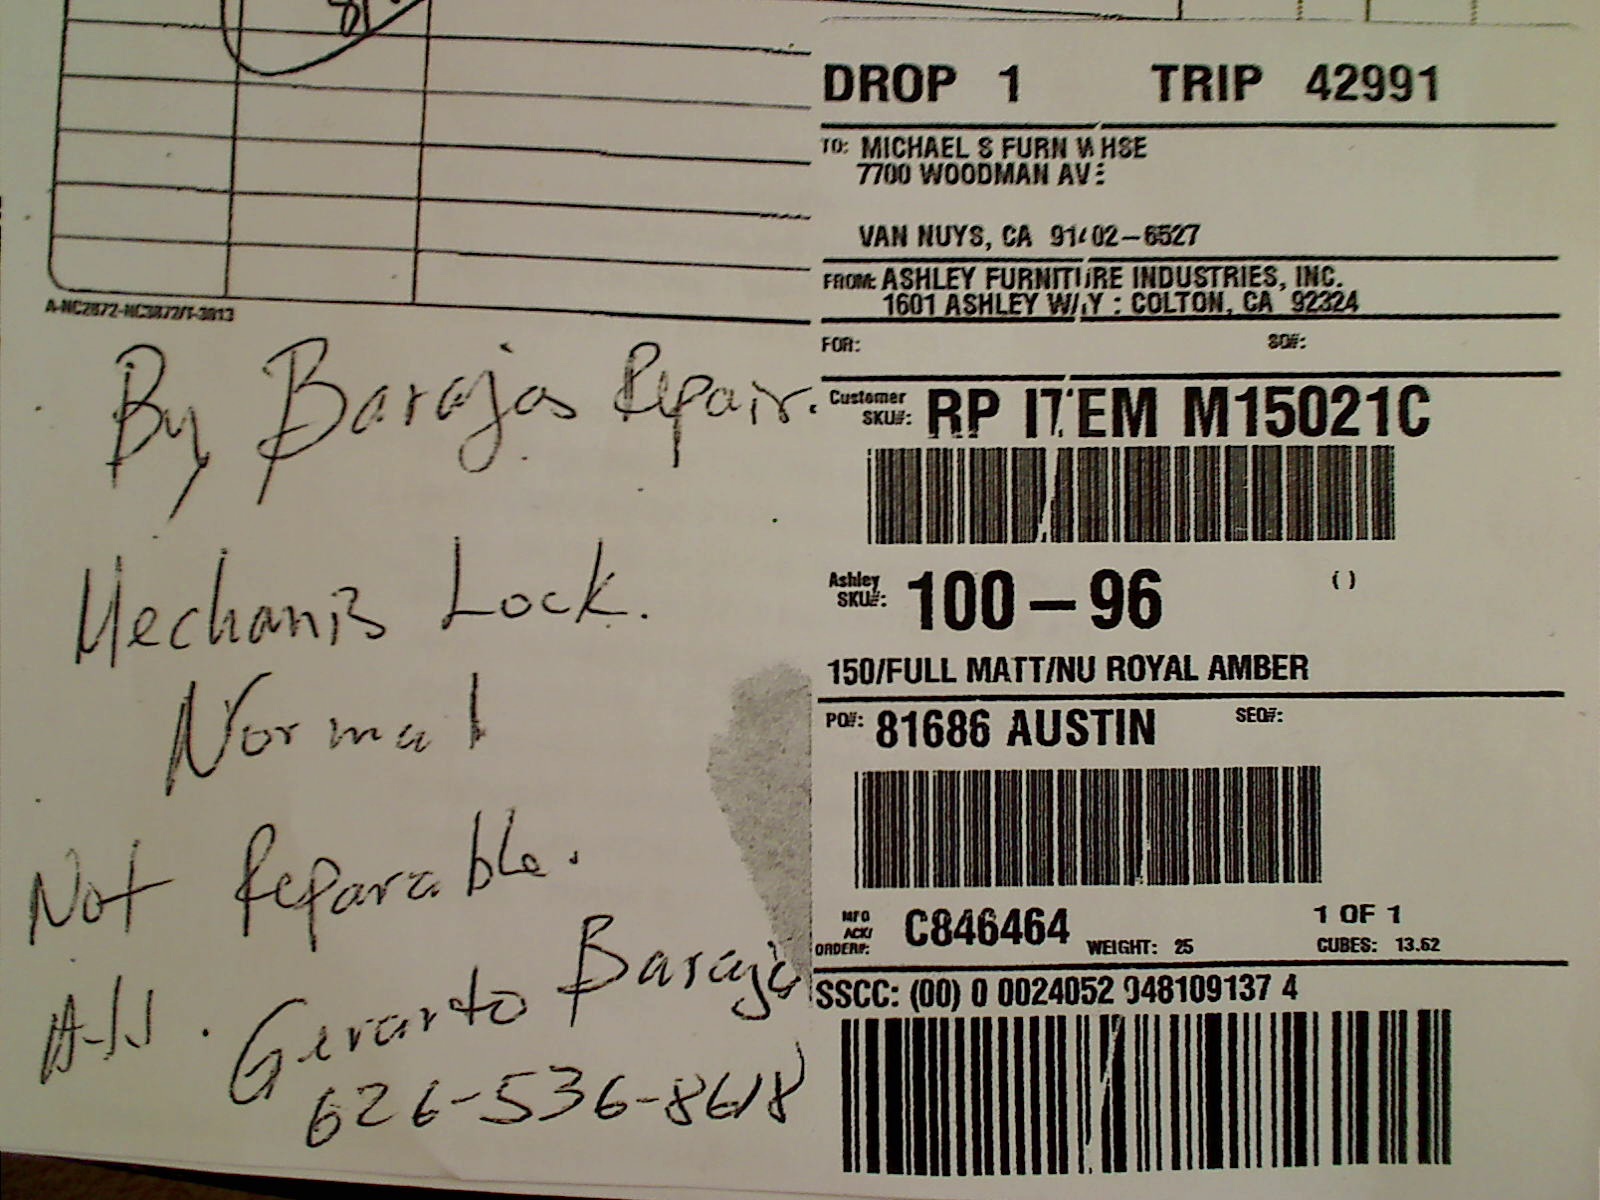 A-NC2872-NC3872/T-3813
By Barajas Repair.
Mechanis Lock.
Normal
Not Reparable.
Att. Gerardo Baraja
626-536-8618
DROP 1 TRIP 42991
TO: MICHAEL S FURN WHSE
7700 WOODMAN AVE
VAN NUYS, CA 91402-6527
FROM: ASHLEY FURNITURE INDUSTRIES, INC.
1601 ASHLEY WAY : COLTON, CA 92324
FOR: SO#:
Customer SKU#: RP ITEM M15021C
Ashley SKU#: 100-96 ( )
150/FULL MATT/NU ROYAL AMBER
PO#: 81686 AUSTIN SEQ#:
MFG ACK/ ORDER#: C846464 1 OF 1
WEIGHT: 25 CUBES: 13.62
SSCC: (00) 0 0024052 948109137 4